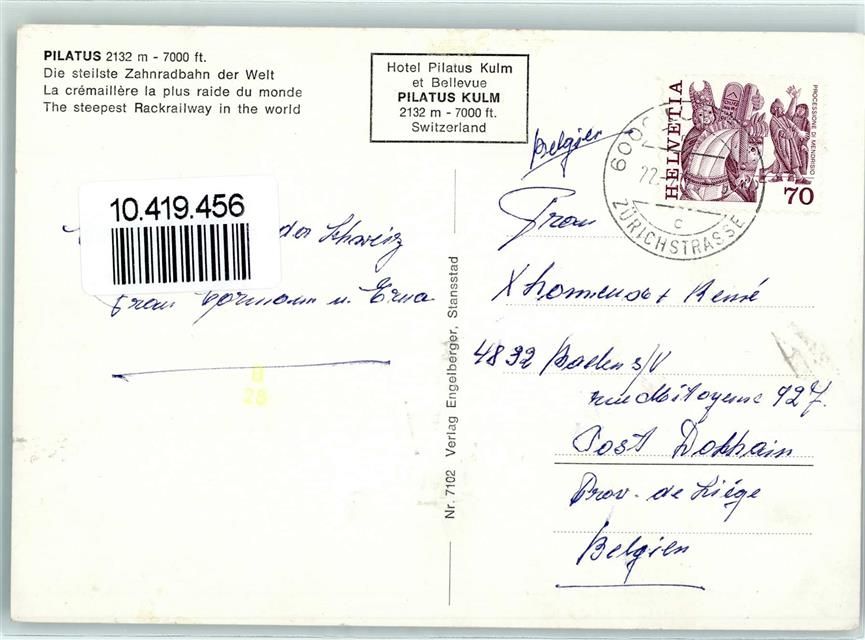 PILATUS 2132 m - 7000 ft.
Die steilste Zahnradbahn der Welt
La crémaillère la plus raide du monde
The steepest Rackrailway in the world
Hotel Pilatus Kulm
et Bellevue
PILATUS KULM
2132 m - 7000 ft.
Switzerland
HELVETIA
PROCESSIONE DI MENDRISIO
70
600
22.
ZÜRICHSTRASSE
c
10.419.456
der Schweiz
Frau u. Erna
B
28
Nr. 7102 Verlag Engelberger, Stansstad
Belgien
Frau
René
4832 Baelen s/V
rue Mitoyenne 927.
Post Dolhain
Prov. de Liége
Belgien